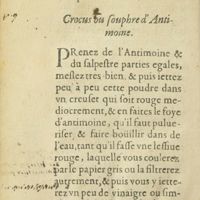 Crocus ou souphre d'Anti-
moine.
PRenez de l'Antimoine &
du salpestre parties egales,
meslez tres-bien, & puis iettez
peu à peu cette poudre dans
vn creuset qui soit rouge me-
diocrement, & en faites le foye
d'antimoine, qu'il faut pulue-
riser, & faire boüillir dans de
l'eau, tant qu'il fasse vne lessiue
rouge, laquelle vous coulerez
par le papier gris ou la filtrerez
autrement, & puis vous y iette-
rez vn peu de vinaigre ou sim-